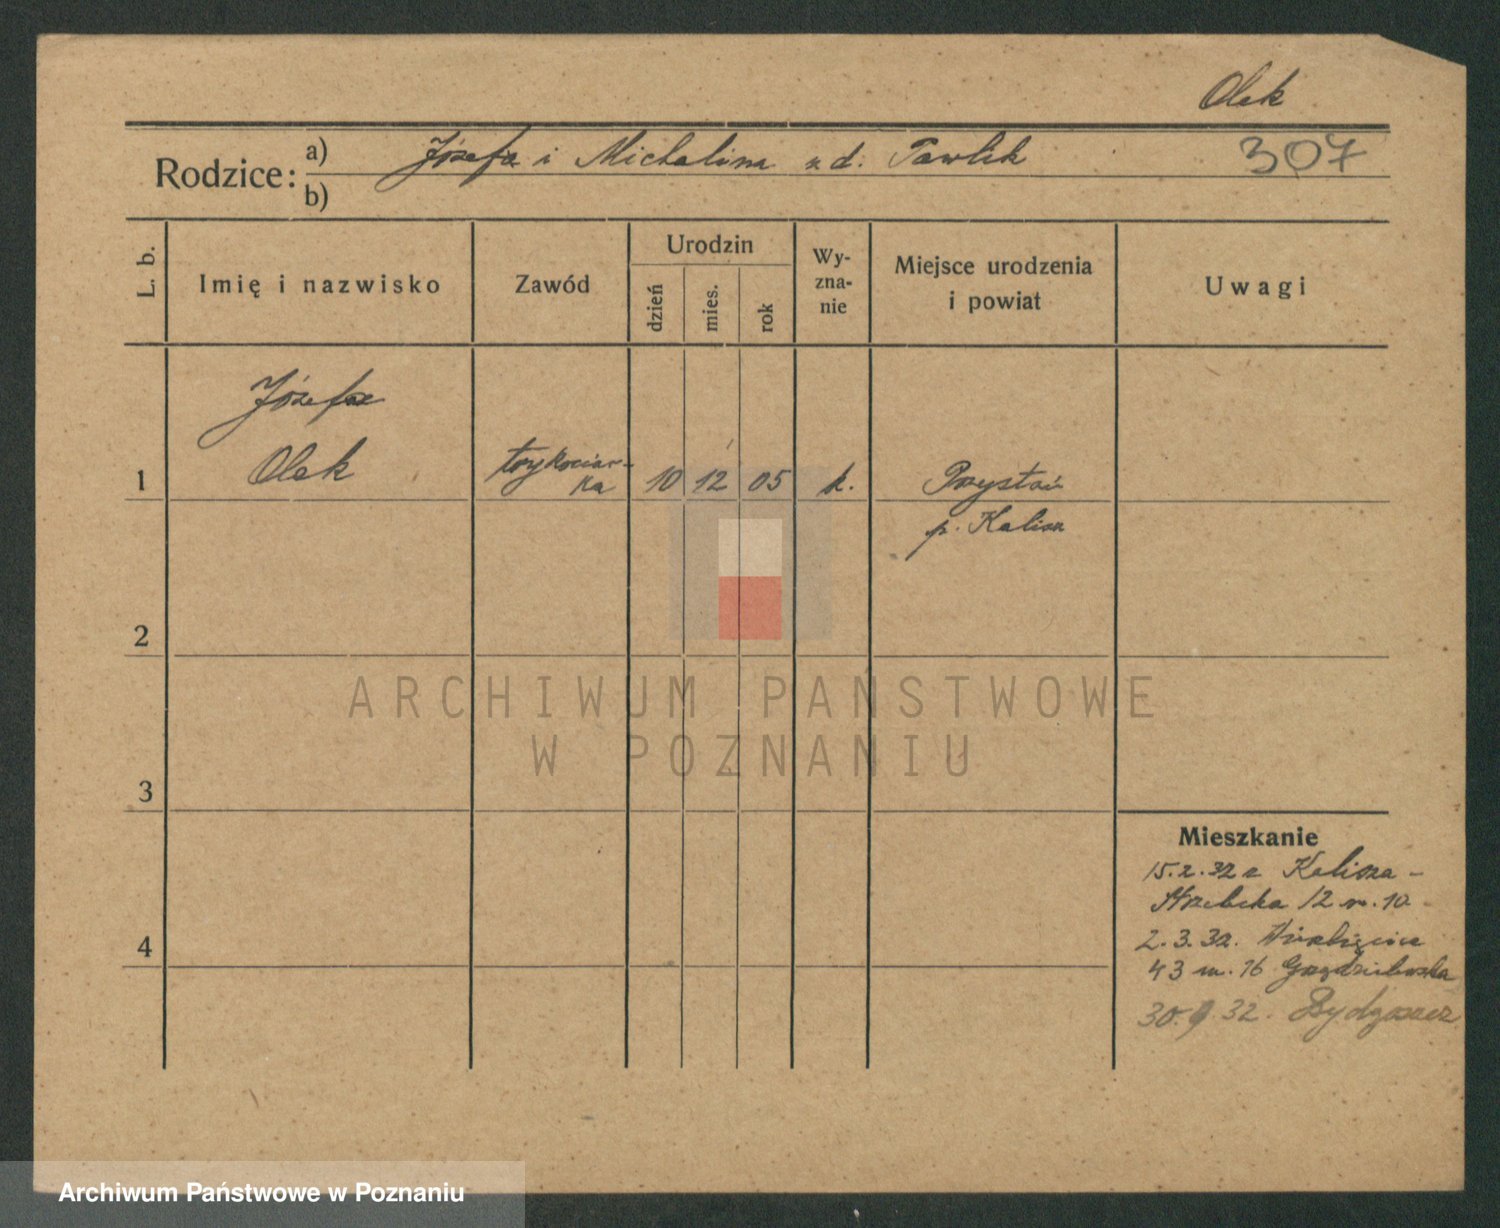 Olek
Rodzice: a) Józefa i Michalina z d. Pawlik 307
b)
L. b. Imię i nazwisko Zawód Urodzin dzień mies. rok Wyznanie Miejsce urodzenia i powiat Uwagi
Józefa
1 Olek trykociar-
ka 10 12 05 k. Przystań
p. Kalisz
2
3
4
Mieszkanie
15.2.32 z Kalisza -
Strzelecka 12 m. 10
2.3.32.
43 m. 16
30.9.32. Bydgoszcz
ARCHIWUM PAŃSTWOWE
W POZNANIU
Archiwum Państwowe w Poznaniu